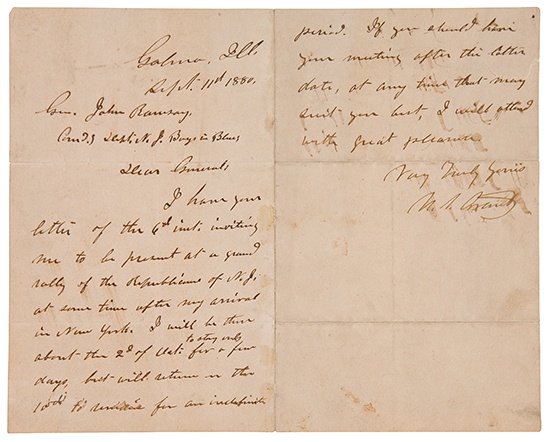 Galena, Ill.
Sept. 11th 1880.
Gen. John Ramsay,
Comd.g Dept. N. J. Boys in Blue;
Dear General:
I have your
letter of the 6th inst. inviting
me to be present at a grand
rally of the Republicans of N. J.
at some time after my arrival
in New York. I will be there
about the 2d of Oct. to stay only for a few
days, but will return on the
to remain for an indefinite
period. If you should have
your meeting after the latter
date, at any time that may
suit you best, I will attend
with great pleasure.
Very Truly Yours
U. S. Grant